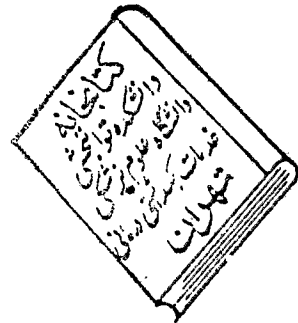 کتابخانه
دانشکده توانبخشی
دانشگاه علوم پزشکی
خدمات بهداشتی درمانی
تهران